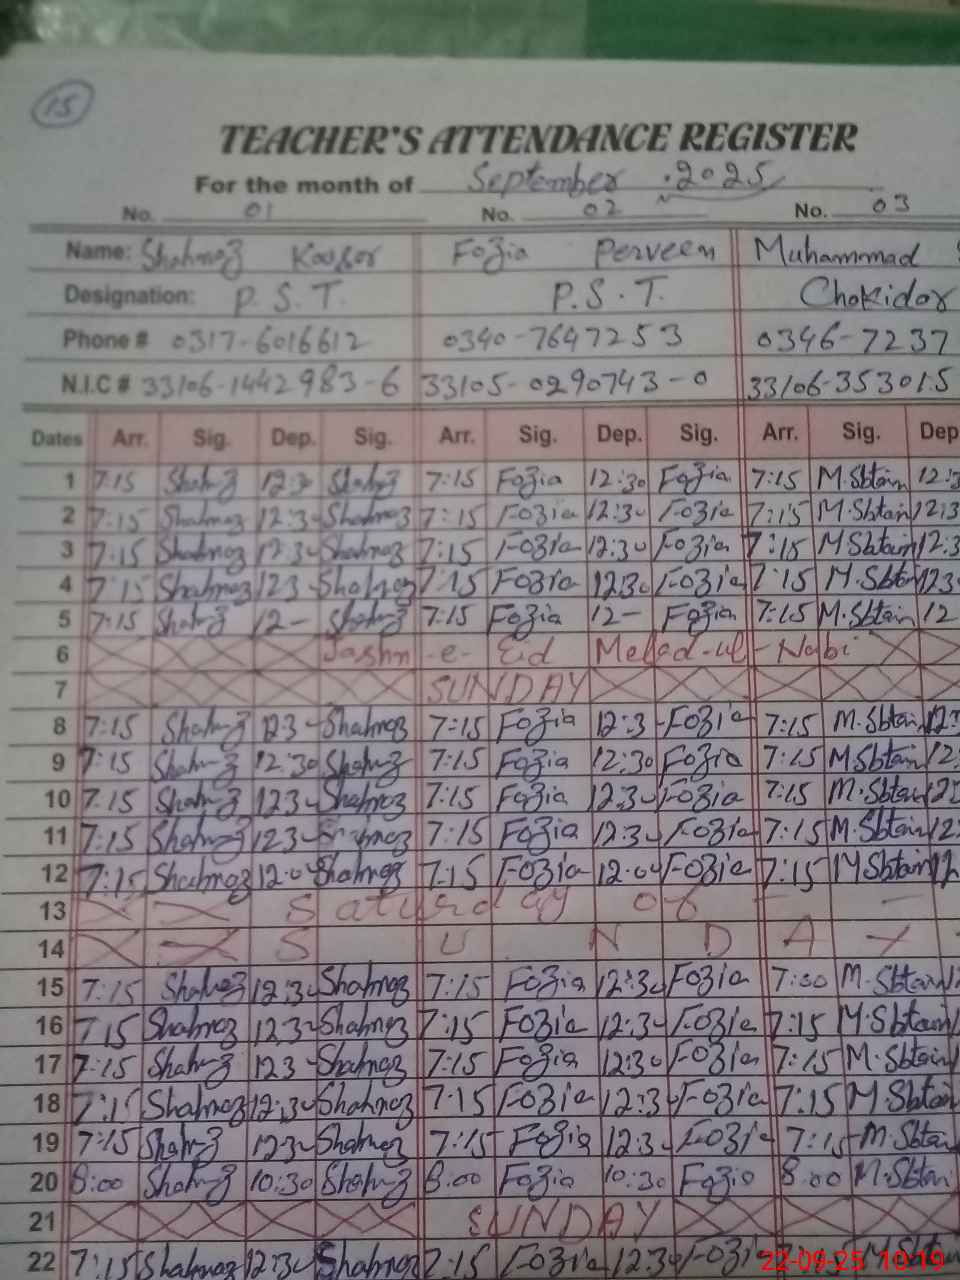 15
TEACHER'S ATTENDANCE REGISTER
For the month of September . 2025
No. 01 No. 02 No. 03
Name: Shahnaz Kousar Fozia Perveen Muhammad
Designation: P.S.T. P.S.T. Chokidar
Phone # 0317-6016612 0340-7647253 0346-7237
N.I.C # 33106-1442983-6 33105-0290743-0 33106-353015
Dates Arr. Sig. Dep. Sig. Arr. Sig. Dep. Sig. Arr. Sig. Dep
1 7:15 Shahnaz 12:30 Shahnaz 7:15 Fozia 12:30 Fozia 7:15 M.Sbtain 12:3
2 7:15 Shahnaz 12:30 Shahnaz 7:15 Fozia 12:30 Fozia 7:15 M.Sbtain 12:3
3 7:15 Shahnaz 12:30 Shahnaz 7:15 Fozia 12:30 Fozia 7:15 M Sbtain 12:3
4 7:15 Shahnaz 12:30 Shahnaz 7:15 Fozia 12:30 Fozia 7:15 M.Sbtain 12:3
5 7:15 Shahnaz 12- Shahnaz 7:15 Fozia 12- Fozia 7:15 M.Sbtain 12
6 Jashn-e-Eid Melad-ul-Nabi
7 SUNDAY
8 7:15 Shahnaz 12:30 Shahnaz 7:15 Fozia 12:30 Fozia 7:15 M.Sbtain 12:
9 7:15 Shahnaz 12:30 Shahnaz 7:15 Fozia 12:30 Fozia 7:15 M Sbtain 12:
10 7:15 Shahnaz 12:30 Shahnaz 7:15 Fozia 12:30 Fozia 7:15 M.Sbtain 12:
11 7:15 Shahnaz 12:30 Shahnaz 7:15 Fozia 12:30 Fozia 7:15 M.Sbtain 12:
12 7:15 Shahnaz 12:00 Shahnaz 7:15 Fozia 12:00 Fozia 7:15 M Sbtain 12
13 Saturday of
14 SUNDAY
15 7:15 Shahnaz 12:30 Shahnaz 7:15 Fozia 12:30 Fozia 7:00 M.Sbtain 1
16 7:15 Shahnaz 12:30 Shahnaz 7:15 Fozia 12:30 Fozia 7:15 M.Sbtain
17 7:15 Shahnaz 12:30 Shahnaz 7:15 Fozia 12:30 Fozia 7:15 M.Sbtain
18 7:15 Shahnaz 12:30 Shahnaz 7:15 Fozia 12:30 Fozia 7:15 M.Sbtain
19 7:15 Shahnaz 12:30 Shahnaz 7:15 Fozia 12:30 Fozia 7:15 M.Sbtain
20 8:00 Shahnaz 10:30 Shahnaz 8:00 Fozia 10:30 Fozia 8:00 M.Sbtain
21 SUNDAY
22 7:15 Shahnaz 12:30 Shahnaz 7:15 Fozia 12:30 Fozia 7:15 M.Sbtain
22-09-25 10:19